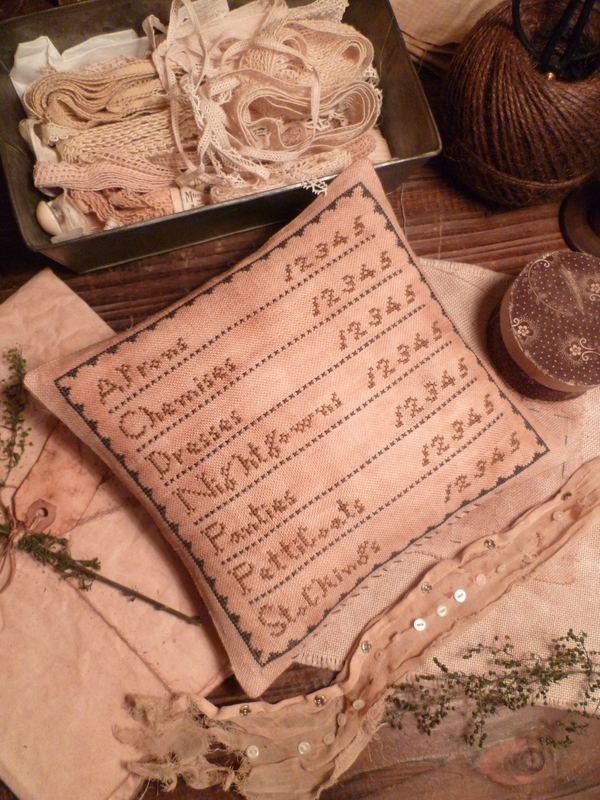 Aprons 12345
Chemises 12345
Dresses 12345
Nightgowns 12345
Panties 12345
Petticoats 12345
Stockings 12345